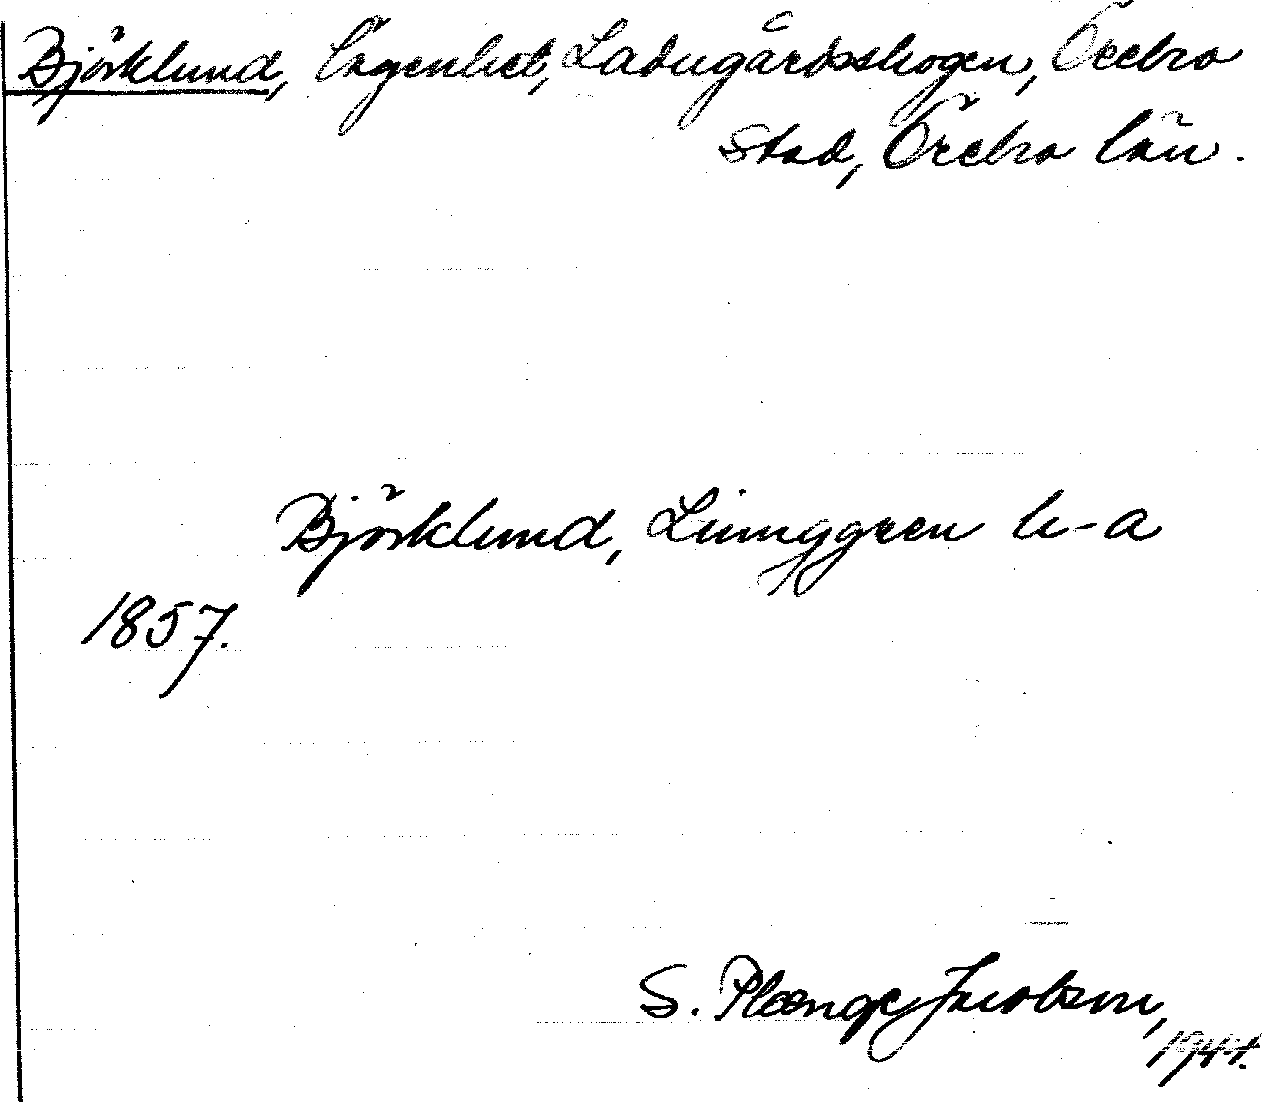 Björklund, lägenhet, Ladugårdsskogen, Örebro
stad, Örebro län.
Björklund, Ljunggren h-a
1857.
S. Plænge Jacobson,
1944.